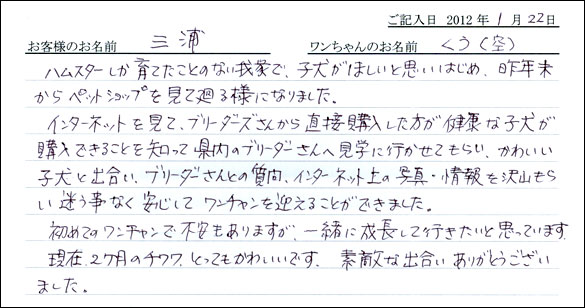 ご記入日 2012年 1月 22日
お客様のお名前 三浦 ワンちゃんのお名前 くう(空)
ハムスターしか育てたことのない我家で、子犬がほしいと思いはじめ、昨年末
からペットショップを見て廻る様になりました。
インターネットを見て、ブリーダーズさんから直接購入した方が健康な子犬が
購入できることを知って県内のブリーダーさんへ見学に行かせてもらい、かわいい
子犬と出合い、ブリーダーさんとの質問、インターネット上の写真・情報を沢山もら
い迷う事なく安心してワンチャンを迎えることができました。
初めてのワンチャンで不安もありますが、一緒に成長して行きたいと思っています
現在、2ヶ月のチワワ、とってもかわいいです。素敵な出合いありがとうござい
ました。